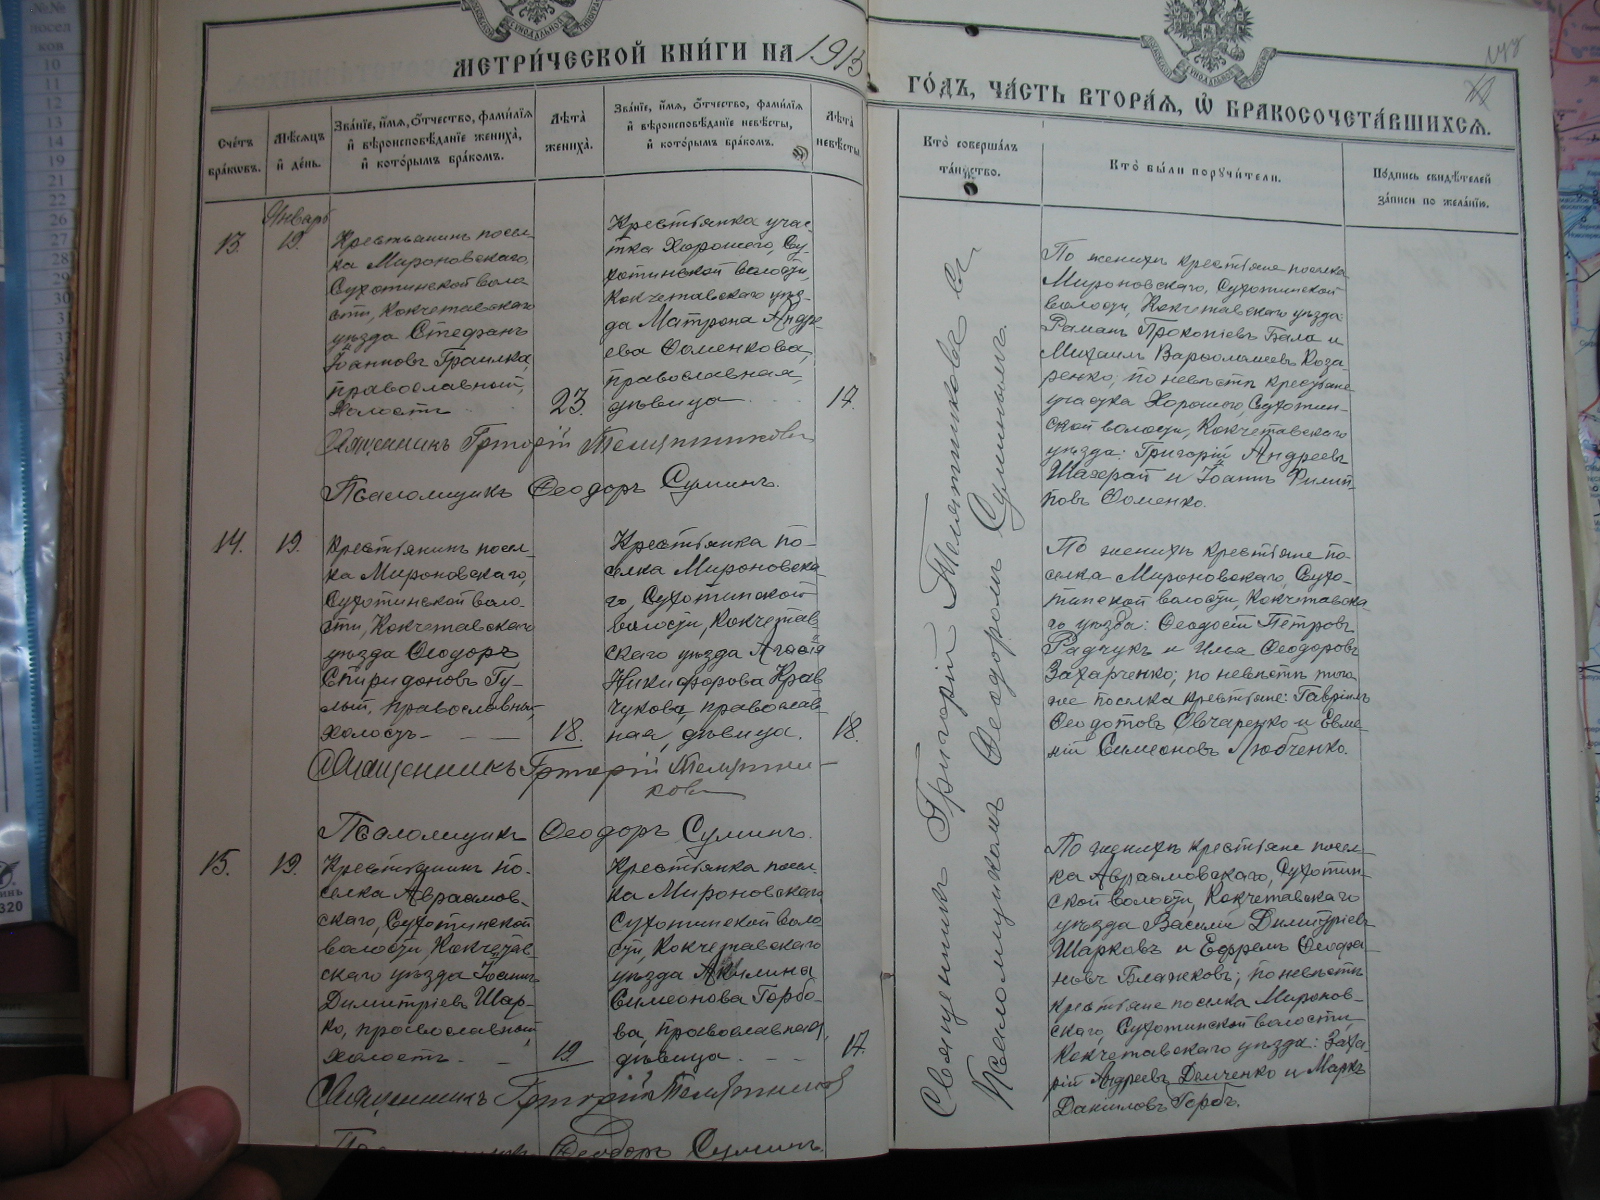 МЕТРИ́ЧЕСКОЙ КНИ́ГИ НА 1913
ГО́ДЪ, ЧА́СТЬ ВТОРА́Я, Ѡ҆ БРАКОСОЧЕТА́ВШИХСЯ.
Сче́тъ бра́ковъ.
Мѣ́сяцъ и҆ де́нь.
Зва́нїе, и҆́мя, ѻ҆́тчество, фами́лїя
и҆ вѣроисповѣ́данїе жениха̀,
и҆ кото́рымъ бра́комъ.
Лѣ́та жениха̀.
Зва́нїе, и҆́мя, ѻ҆́тчество, фами́лїя
и҆ вѣроисповѣ́данїе невѣ́сты,
и҆ кото́рымъ бра́комъ.
Лѣ́та невѣ́сты.
Кто̀ соверша́лъ
та́инство.
Кто̀ бы́ли порꙋчи́тели.
По́дпись свидѣ́телей
за́писи по жела́нїю.
Январь
13.
19.
Крестьянинъ посел-
ка Мироновскаго,
Сухотинской воло
сти, Кокчетавскаго
уѣзда Стефанъ
Іоанновъ
православный,
холостъ
23.
Крестьянка учас-
тка Хорошего, Су-
хотинской волости,
Кокчетавскаго уѣз-
да Матрона Андре
ева Ѳоменкова,
православная,
дѣвица
17.
Священникъ Григорій Телятниковъ
Псаломщикъ Ѳеодоръ Суминъ.
По женихѣ крестьяне поселка
Мироновскаго, Сухотинской
волости, Кокчетавскаго уѣзда:
Романъ Прокопіевъ Бала и
Михаилъ Варѳоломеевъ Коза-
ренко; по невѣстѣ крестьяне
участка Хорошаго, Сухотин-
ской волости, Кокчетавскаго
уѣзда: Григорій Андреевъ
и Іоаннъ Филип-
повъ Ѳоменко.
14.
19.
Крестьянинъ посел-
ка Мироновскаго,
Сухотинской воло-
сти, Кокчетавскаго
уѣзда Ѳеодоръ
Спиридоновъ Гу-
лый, православный,
холостъ
18.
Крестьянка по-
селка Мироновска-
го, Сухотинской
волости, Кокчетав-
скаго уѣзда Агаѳія
Никифорова Крав-
чукова, православ-
ная, дѣвица.
18.
Священникъ Григорій Телятни-
ковъ
Псаломщикъ Ѳеодоръ Суминъ.
По женихѣ крестьяне по-
селка Мироновскаго, Сухо-
тинской волости, Кокчетавска-
го уѣзда: Ѳеодосій Петровъ
Радчукъ и Илья Ѳеодоровъ
Захарченко; по невѣстѣ того
же поселка крестьяне: Гавріилъ
Ѳеодотовъ Овчаренко и Евме-
ній Симеоновъ Любченко.
15.
19.
Крестьянинъ по-
селка Авраамов-
скаго, Сухотинской
волости, Кокчетав-
скаго уѣзда Іоаннъ
Димитріевъ Шар-
ко, православный,
холостъ
19
Крестьянка посел-
ка Мироновскаго
Сухотинской воло
сти, Кокчетавскаго
уѣзда Акилина
Симеонова Горбо-
ва, православная,
дѣвица
17.
Священникъ Григорій Телятниковъ
Псаломщикъ Ѳеодоръ Суминъ.
По женихѣ крестьяне посел-
ка Авраамовскаго, Сухотин-
ской волости, Кокчетавскаго
уѣзда Василій Димитріевъ
Шарковъ и Ефремъ Ѳеофа-
новъ Блажковъ; по невѣстѣ
крестьяне поселка Миронов-
скаго, Сухотинской волости,
Кокчетавскаго уѣзда: Заха-
рій Андреевъ Демченко и Маркъ
Даниловъ Горбъ.
Священникъ Григорій Телятниковъ съ
Псаломщикомъ Ѳеодоромъ Суминымъ.